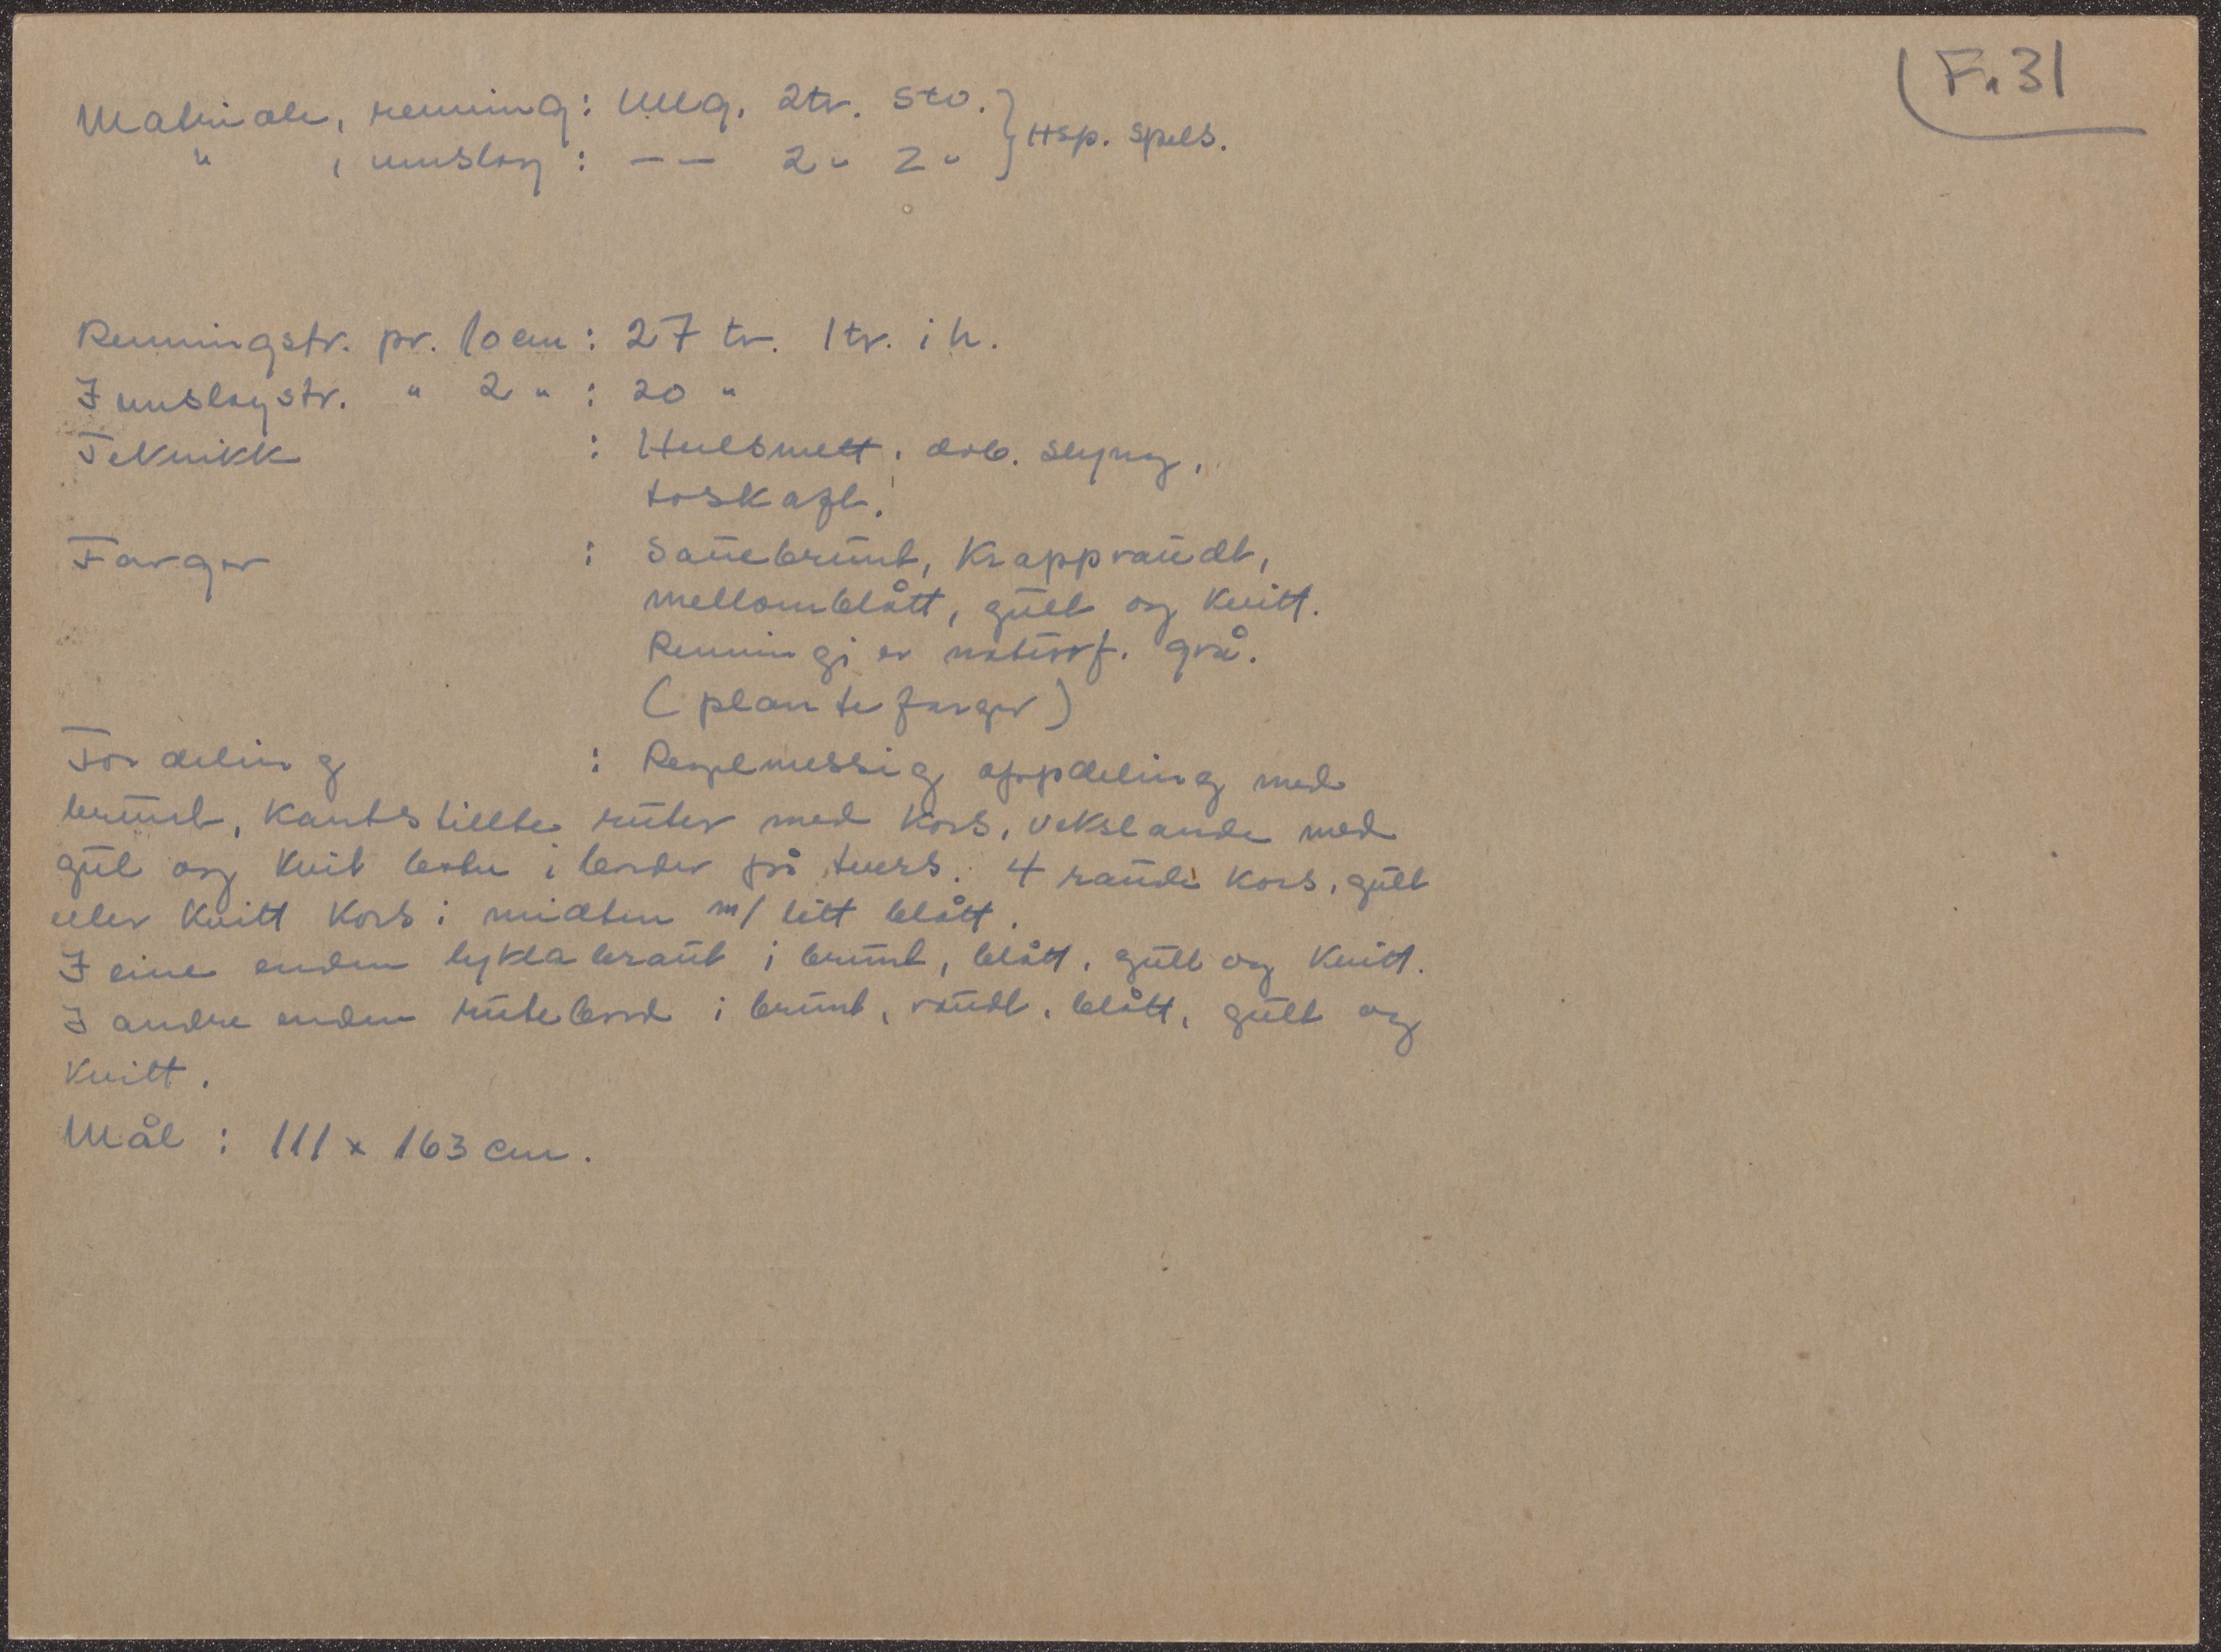 F. 31
Materiale, renning: Ullg. 2tr. Stv. } Hsp. spels.
" , innslag: — — 2 " Z "
Renningstr. pr. 10 cm : 27 tr. 1 tr. i h.
Innslagstr. " 2 " : 20 "
Teknikk : Hulsmett, dob. slyng,
toskaft.
Farger : Sauebrunt, Krappraudt,
mellomblått, gult og Kvitt.
Renningi er naturf. grå.
(plantefarger)
Fordeling : Regelmessig oppdeling med
brunt, Kantstillte ruter med Kors, vekslande med
gul og Kvit botn i border på tvers. 4 raude Kors, gult
eller Kvitt Kors i midten m/ litt blått.
I eine enden lyklabraut i brunt, blått, gult og Kvitt.
I andre enden rutebord i brunt, raudt, blått, gult og
Kvitt.
Mål : 111 x 163 cm.